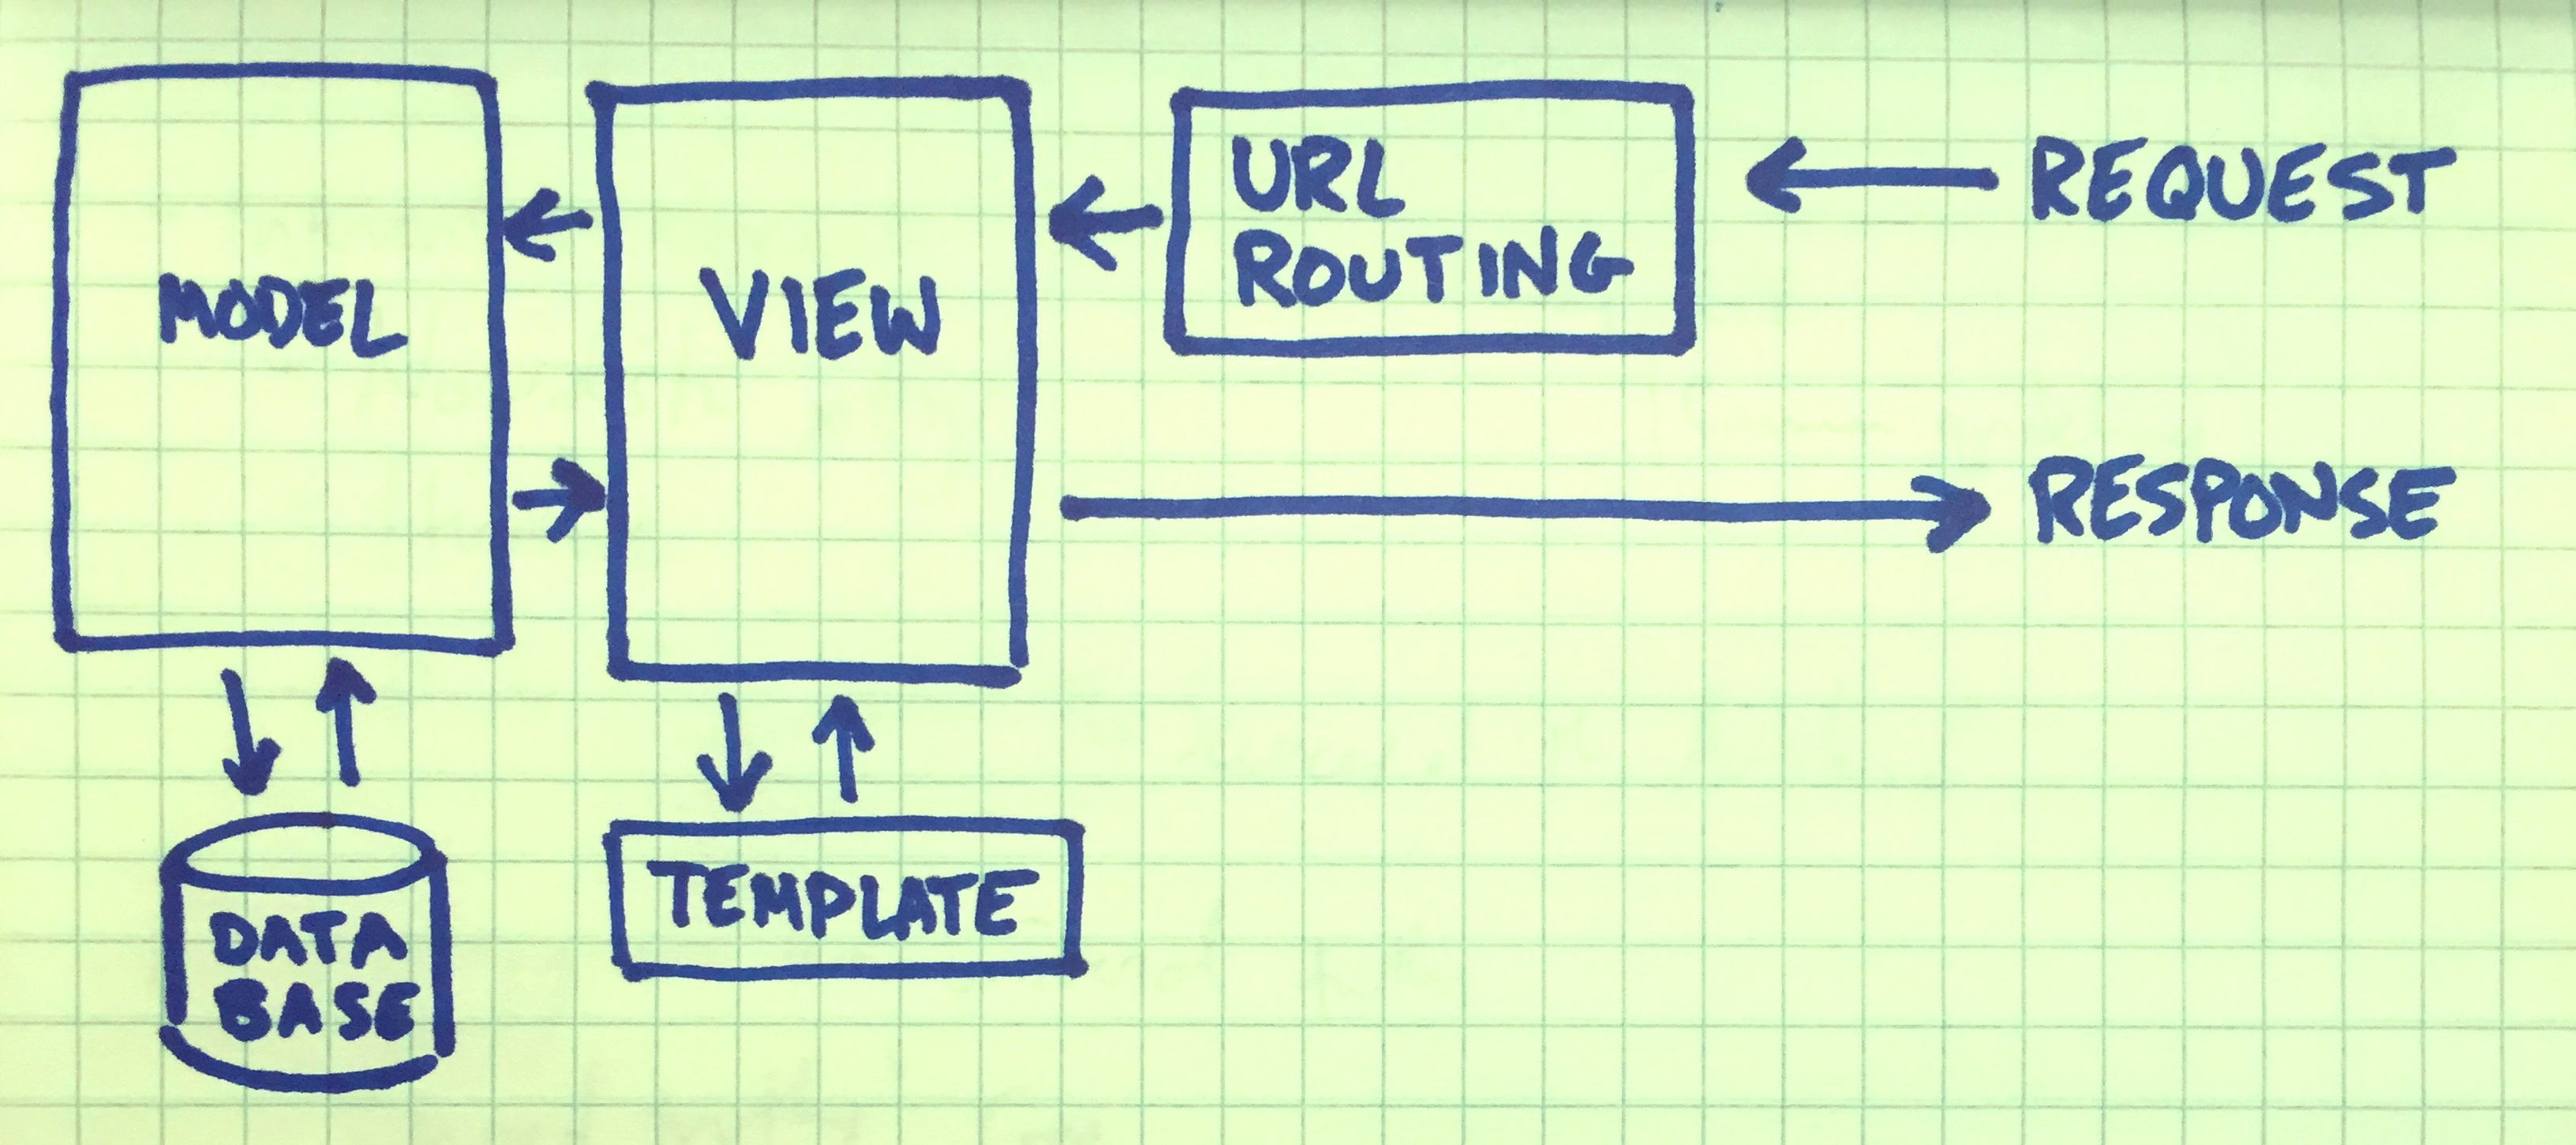 MODEL
VIEW
URL
ROUTING
REQUEST
RESPONSE
DATA
BASE
TEMPLATE